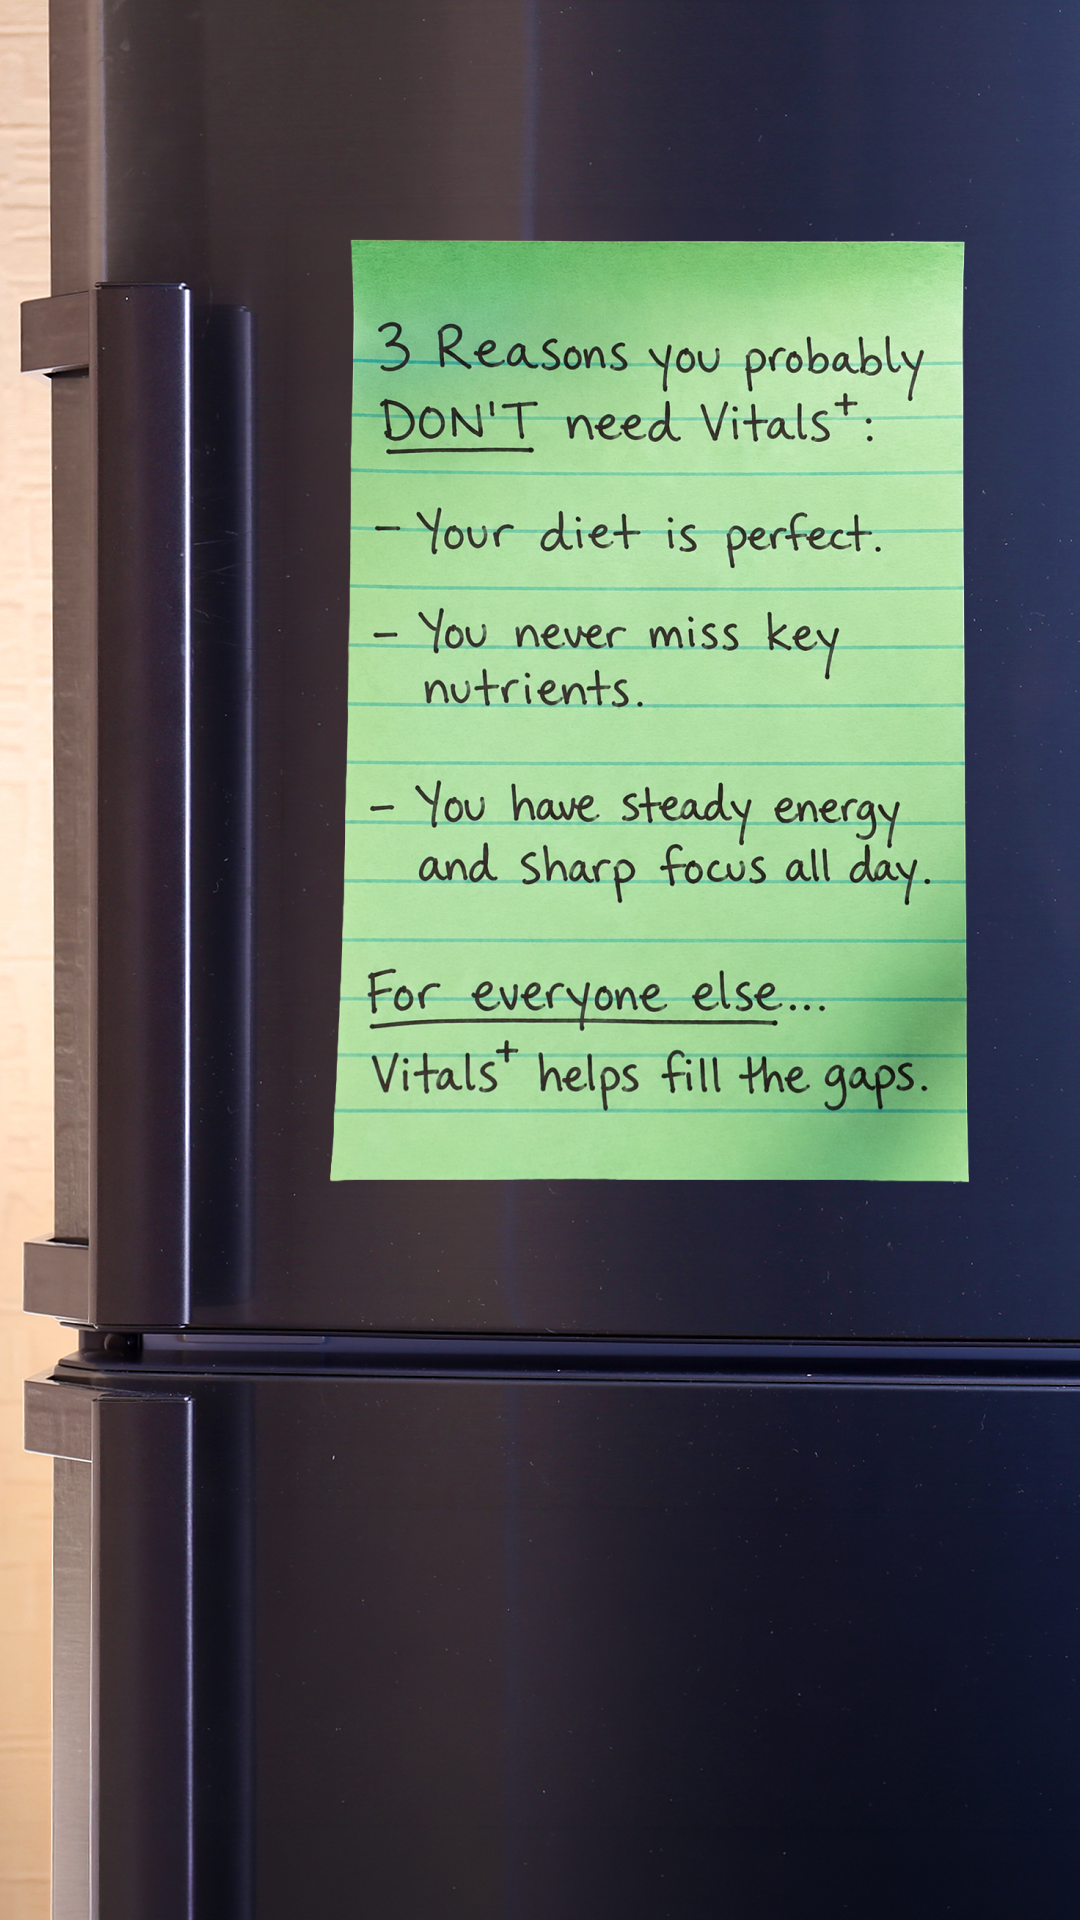 3 Reasons you probably
DON'T need Vitals⁺:
- Your diet is perfect.
- You never miss key
nutrients.
- You have steady energy
and sharp focus all day.
For everyone else...
Vitals⁺ helps fill the gaps.